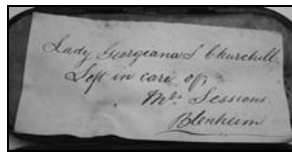 Lady Georgeana S Churchill.
Left in care of
Mrs. Sessions
Blenheim